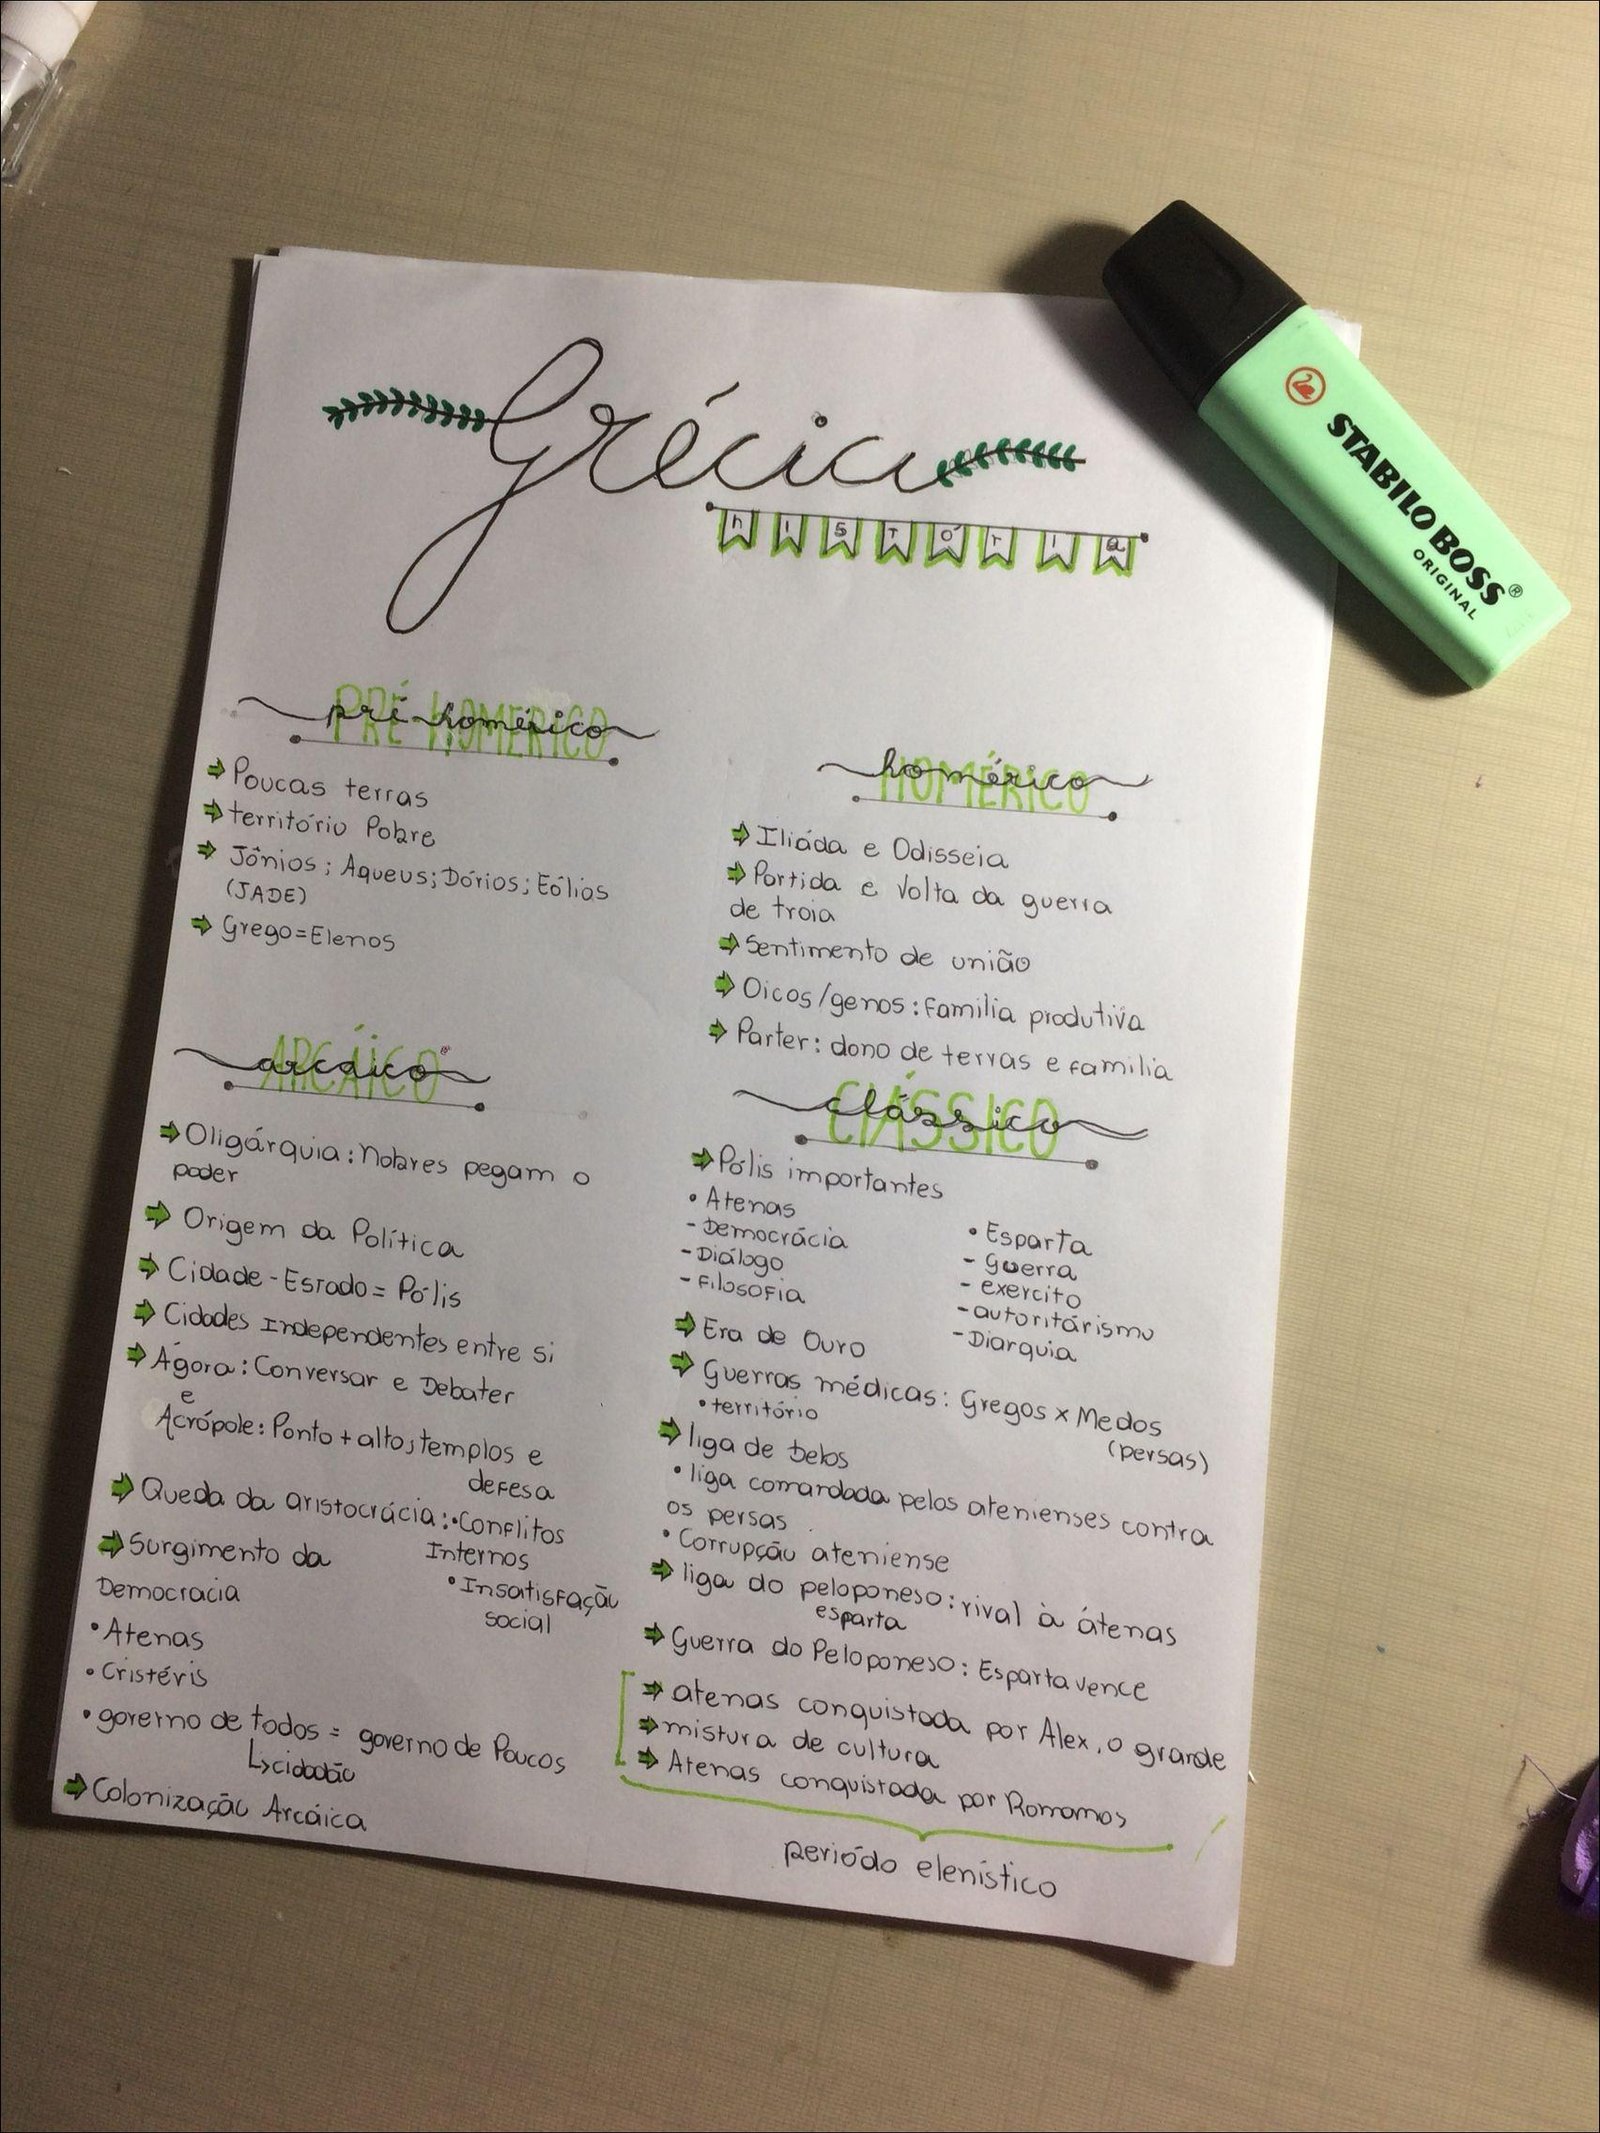 Grécia
história
PRÉ HOMÉRICO
pré-homérico
Poucas terras
território Pobre
Jônios; Aqueus; Dórios; Eólios
(JADE)
Grego=Elenos
HOMÉRICO
homérico
Iliáda e Odisseia
Partida e Volta da guerra
de troia
Sentimento de união
Oicos/genos: família produtiva
Parter: dono de terras e família
ARCÁICO
arcáico
Oligárquia: nobres pegam o
poder
Origem da Política
Cidade-Esrado = Pólis
Cidades Independentes entre si
Ágora: Conversar e Debater
e
Acrópole: Ponto + alto, templos e
defesa
Queda da aristocrácia: •Conflitos
Internos
•Insatisfação
social
Surgimento da
Democracia
•Atenas
•Cristéris
•governo de todos = governo de Poucos
cidadão
Colonização Arcáica
CLÁSSICO
clássico
Pólis importantes
•Atenas
-Democrácia
-Diálogo
-Filosofia
•Esparta
- guerra
- exercito
-autoritárismo
-Diarquia
Era de Ouro
Guerras médicas: Gregos x Medos
(persas)
•território
liga de Delos
•liga comandada pelos atenienses contra
os persas
•Corrupção ateniense
liga do peloponeso: rival à átenas
esparta
Guerra do Peloponeso: Esparta vence
atenas conquistada por Alex, o grande
mistura de cultura
Atenas conquistada por Romamos
periódo elenístico
STABILO BOSS®
ORIGINAL